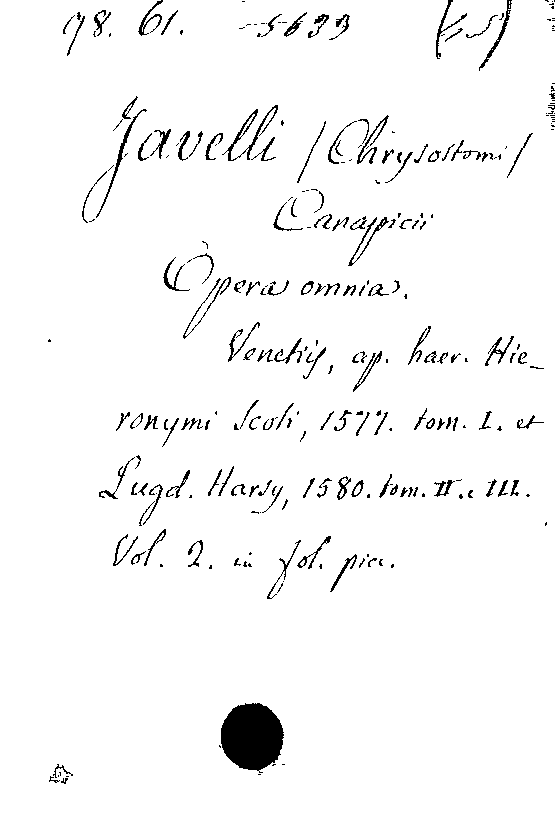 98. 61. 5633
Javelli / Chrysostomi /
Canapicii
Opera omnia.
Venetijs, ap. haer. Hie-
ronymi Scoti, 1577. tom. I. et
Lugd. Harsy, 1580. tom. II. e III.
Vol. 2. in fol. picc.